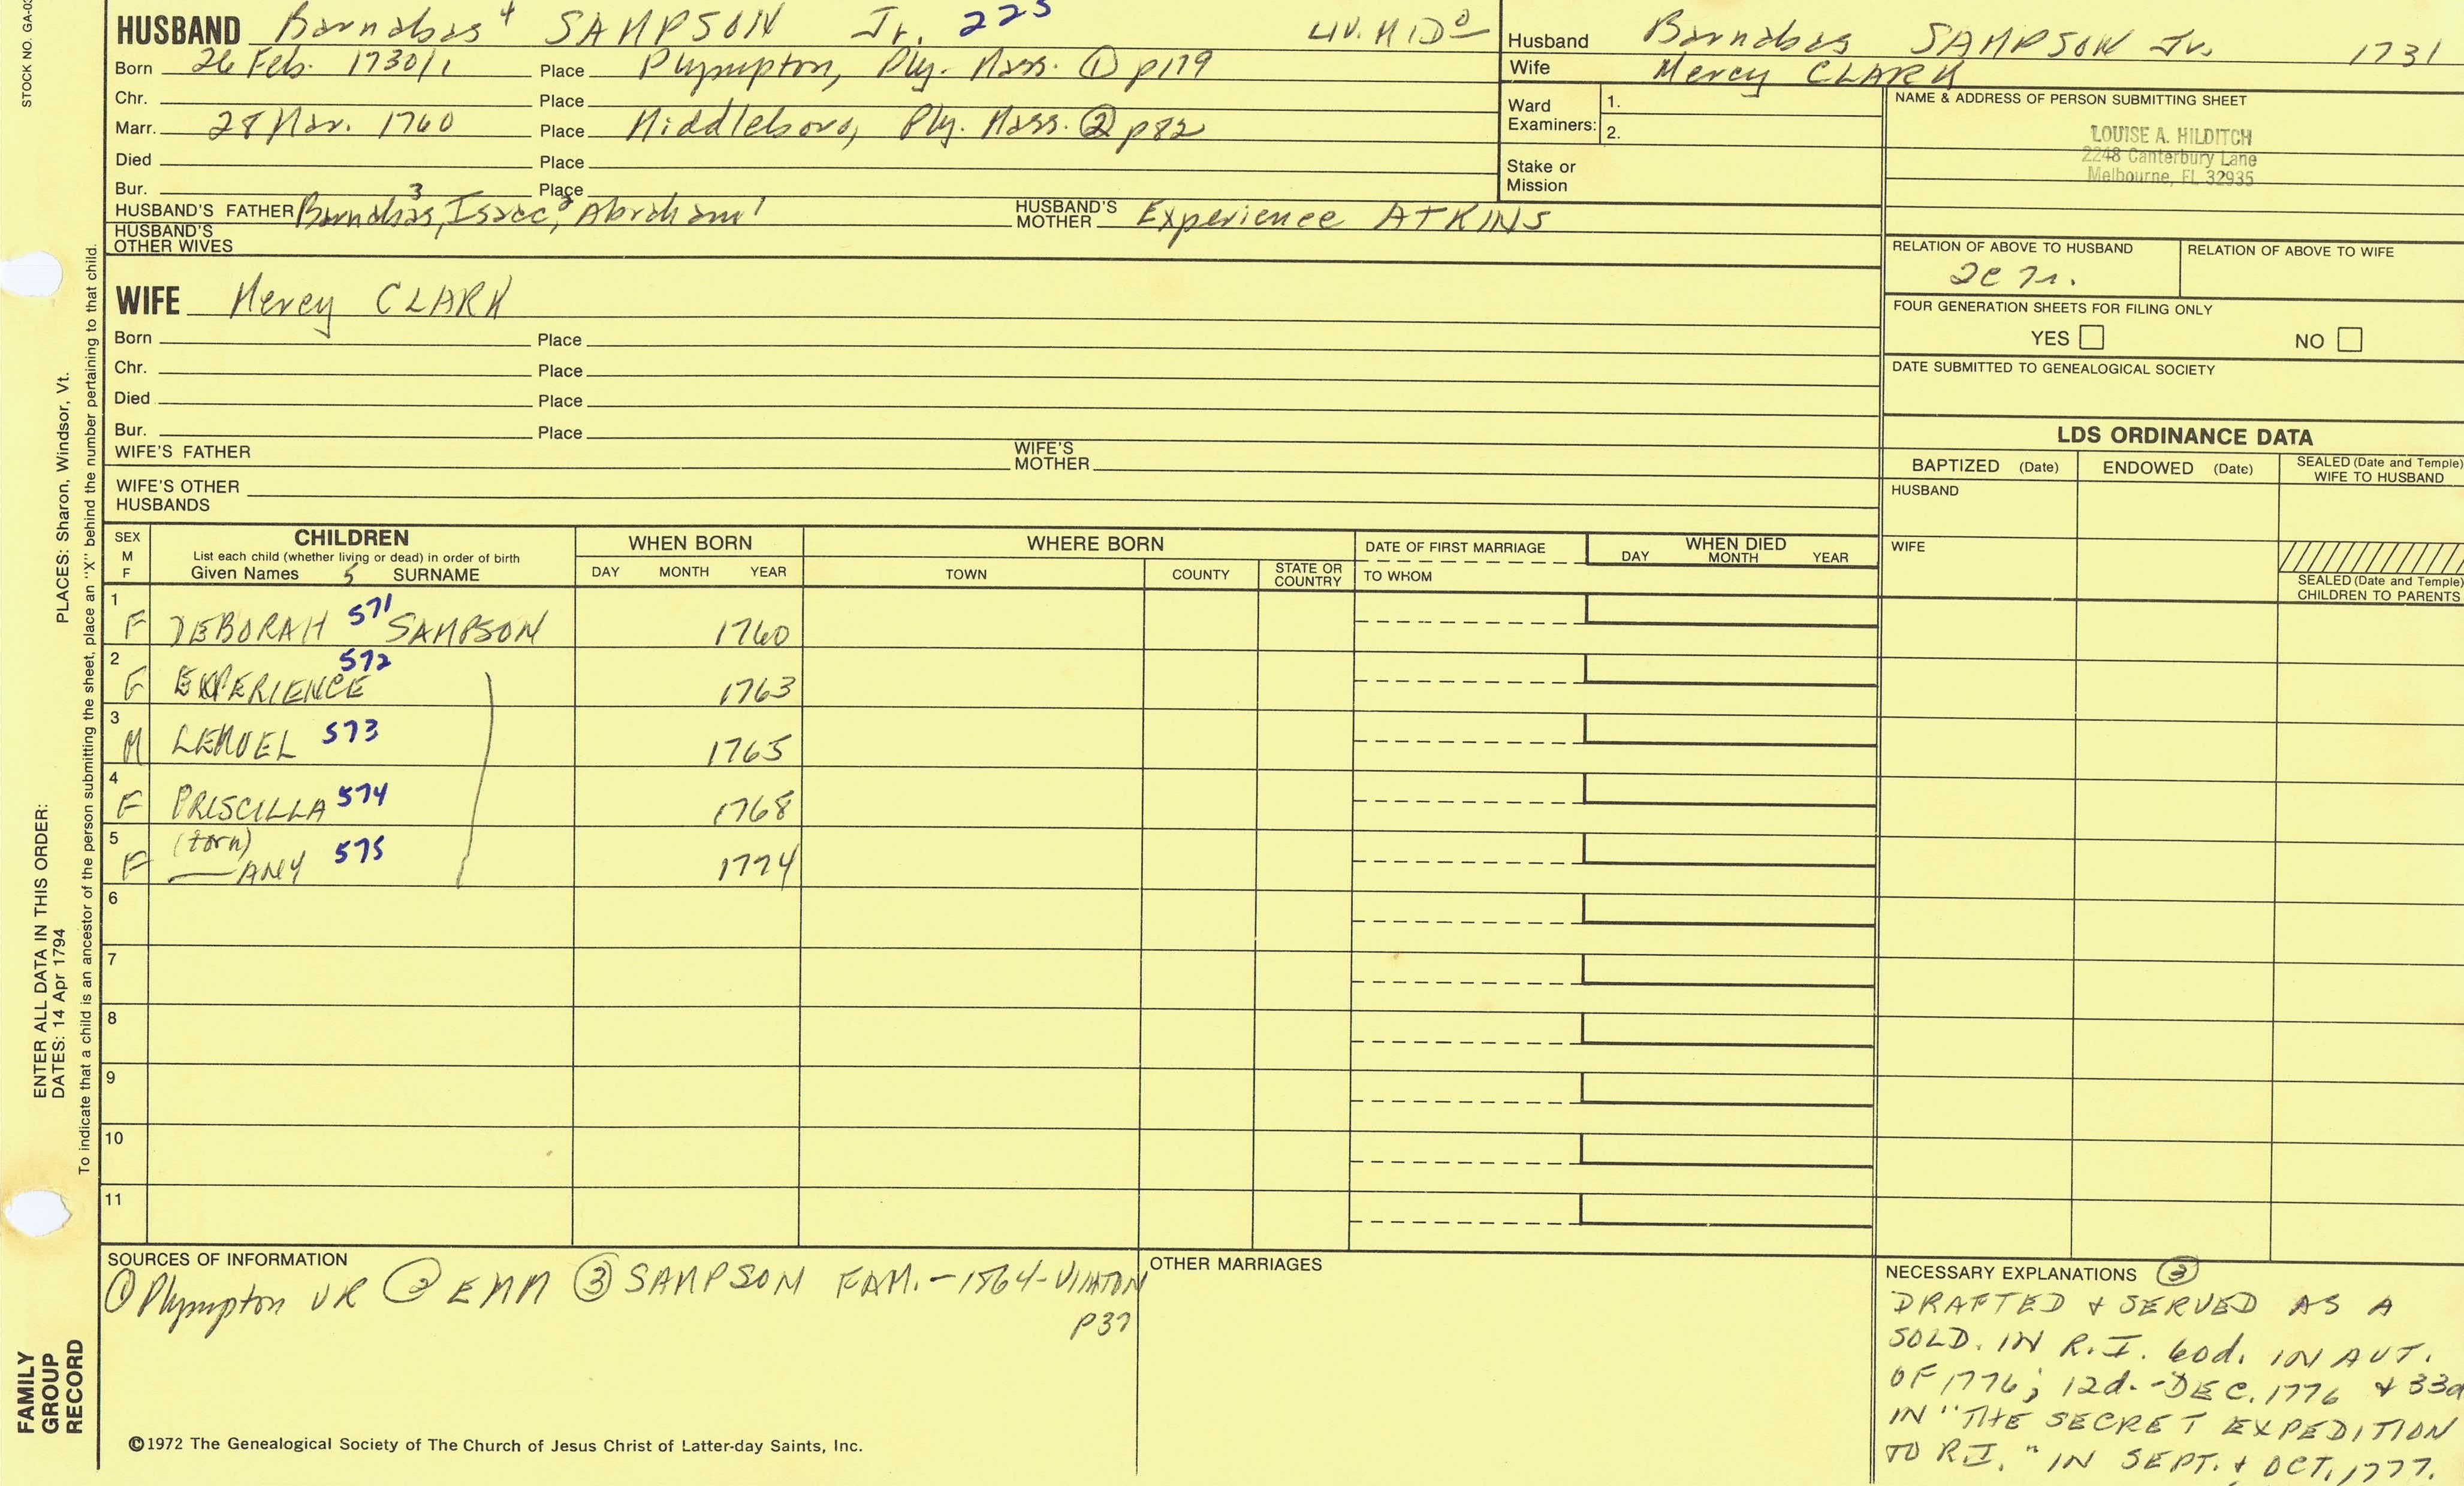 HUSBAND Barnabas 4 SAMPSON Jr. 225 LIV. MIDO
Born 26 Feb. 1730/1 Place Plympton, Ply. Mass. ① p179
Chr. Place
Marr. 28 Mar. 1760 Place Middleboro, Ply. Mass. ② p82
Died Place
Bur. Place
HUSBAND'S FATHER Barnabas 3, Isaac 2, Abraham 1 HUSBAND'S MOTHER Experience ATKINS
HUSBAND'S OTHER WIVES
WIFE Mercy CLARK
Born Place
Chr. Place
Died Place
Bur. Place
WIFE'S FATHER WIFE'S MOTHER
WIFE'S OTHER HUSBANDS
Husband Barnabas SAMPSON Jr. 1731
Wife Mercy CLARK
Ward Examiners: 1.
2.
Stake or Mission
NAME & ADDRESS OF PERSON SUBMITTING SHEET
LOUISE A. HILDITCH
2248 Canterbury Lane
Melbourne, FL 32935
RELATION OF ABOVE TO HUSBAND RELATION OF ABOVE TO WIFE
FOUR GENERATION SHEETS FOR FILING ONLY
YES NO
DATE SUBMITTED TO GENEALOGICAL SOCIETY
LDS ORDINANCE DATA
BAPTIZED (Date) ENDOWED (Date) SEALED (Date and Temple) WIFE TO HUSBAND
HUSBAND
WIFE
SEALED (Date and Temple) CHILDREN TO PARENTS
SEX M F CHILDREN WHEN BORN WHERE BORN DATE OF FIRST MARRIAGE WHEN DIED
List each child (whether living or dead) in order of birth
Given Names 5 SURNAME DAY MONTH YEAR TOWN COUNTY STATE OR COUNTRY TO WHOM DAY MONTH YEAR
1 F DEBORAH 571 SAMPSON 1760
2 F EXPERIENCE 572 1763
3 M LEMUEL 573 1765
4 F PRISCILLA 574 1768
5 F (torn) —ANY 575 1774
6
7
8
9
10
11
SOURCES OF INFORMATION
① Plympton VR ② EMM ③ SAMPSON FAM. - 1864 - VINTON
p37
OTHER MARRIAGES
NECESSARY EXPLANATIONS ③
DRAFTED & SERVED AS A
SOLD. IN R.I. 60d. IN AUT.
OF 1776; 12d. - DEC. 1776 & 33d
IN "THE SECRET EXPEDITION
TO R.I." IN SEPT. & OCT. 1777.
©1972 The Genealogical Society of The Church of Jesus Christ of Latter-day Saints, Inc.
STOCK NO. GA-03
ENTER ALL DATA IN THIS ORDER:
DATES: 14 Apr 1794 PLACES: Sharon, Windsor, Vt.
To indicate that a child is an ancestor of the person submitting the sheet, place an "X" behind the number pertaining to that child.
FAMILY
GROUP
RECORD